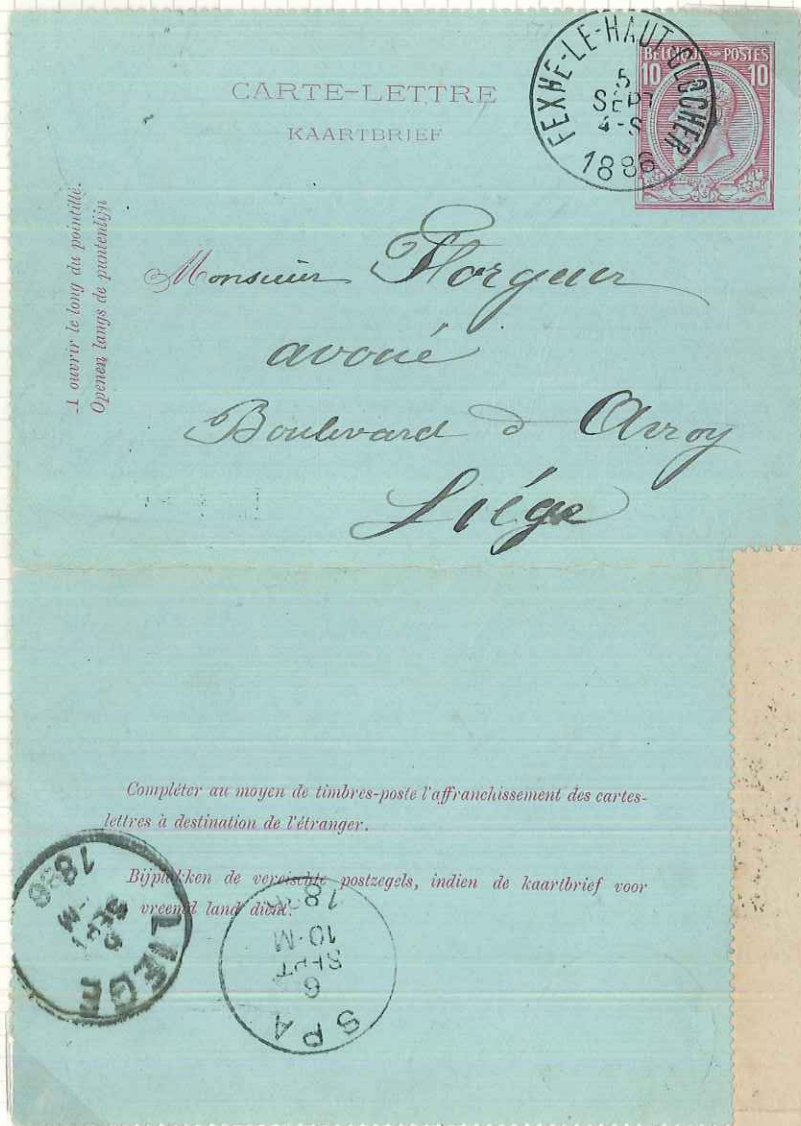 CARTE-LETTRE
KAARTBRIEF
BELGIQUE POSTES
10 10
FEXHE-LE-HAUT-CLOCHER
5
SEPT
4-S
1886
A ouvrir le long du pointillé.
Openen langs de puntenlijn
Monsieur Florguer
avoué
Boulevard d'Avroy
Liége
Compléter au moyen de timbres-poste l'affranchissement des cartes-
lettres à destination de l'étranger.
Bijplakken de vereischte postzegels, indien de kaartbrief voor
vreemd land dient.
LIEGE
SEPT
SPA
6
SEPT
10-M